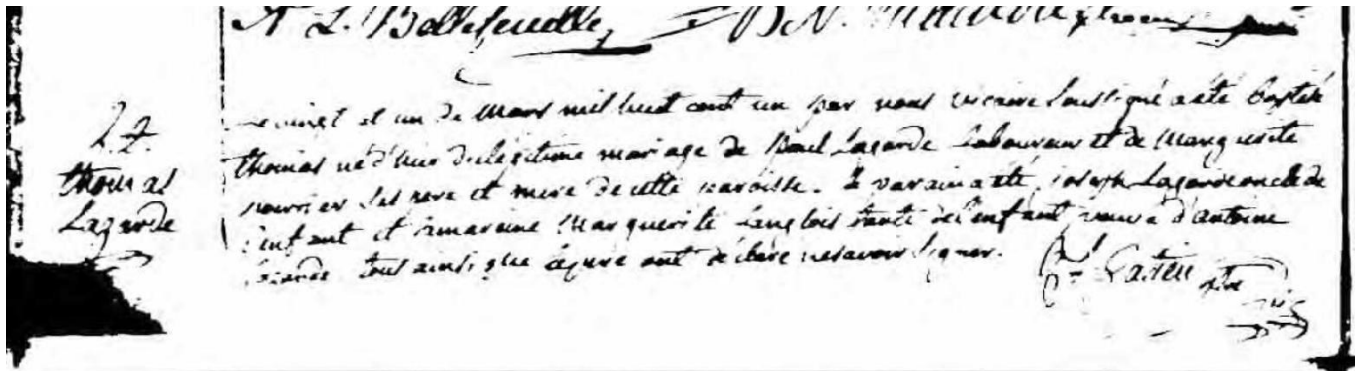 A L. Bellefeuille
27.
thomas
Lagarde
Le vingt et un de Mars mil huit cent un par nous vicaire soussigné a été baptisé
thomas né d'hier du légitime mariage de Paul Lagarde Laboureur et de Marguerite
pourrier ses pere et mere de cette paroisse. Le parain a été joseph Lagarde oncle de
l'enfant et la maraine Marguerite Langlois tante de l'enfant veuve d'antoine
tous ainsi que le pere ont déclaré ne savoir signer.
Gatien ptre